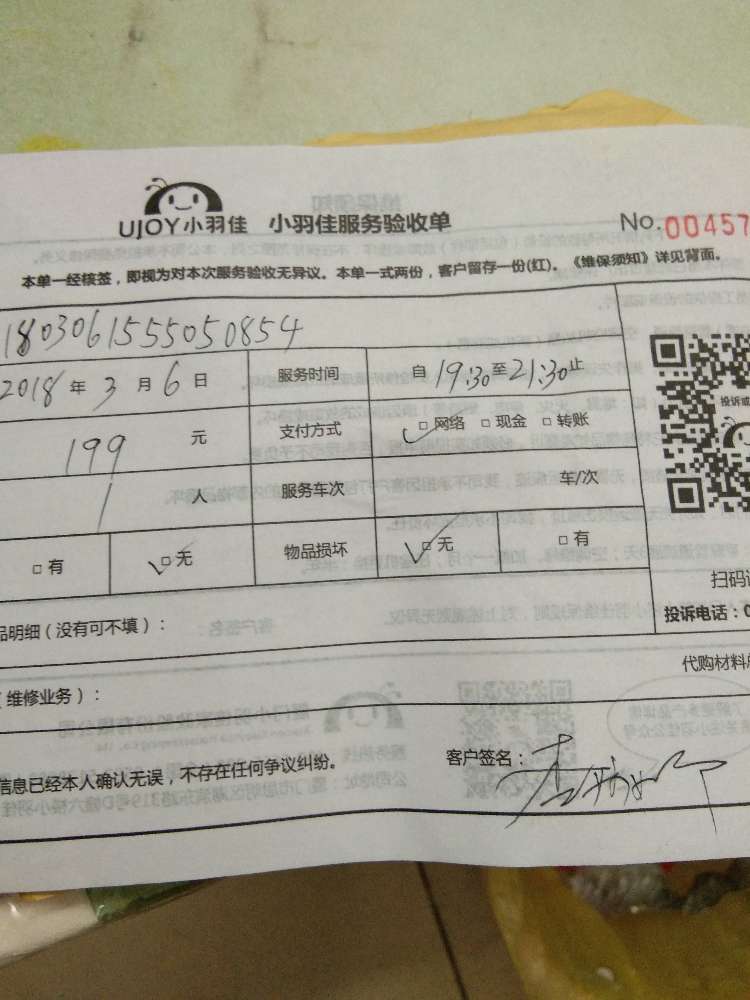 UJOY小羽佳 小羽佳服务验收单 No.00457
本单一经核签，即视为对本次服务验收无异议。本单一式两份，客户留存一份(红)。《维保须知》详见背面。
1803061555050854
2018年3月6日 服务时间 自19:30至21:30止
199元 支付方式 □网络 □现金 □转账
1人 服务车次 车/次
□有 □无 物品损坏 □无 □有
投诉或
扫码
投诉电话：0
品明细（没有可不填）：
代购材料
（维修业务）：
信息已经本人确认无误，不存在任何争议纠纷。
客户签名：